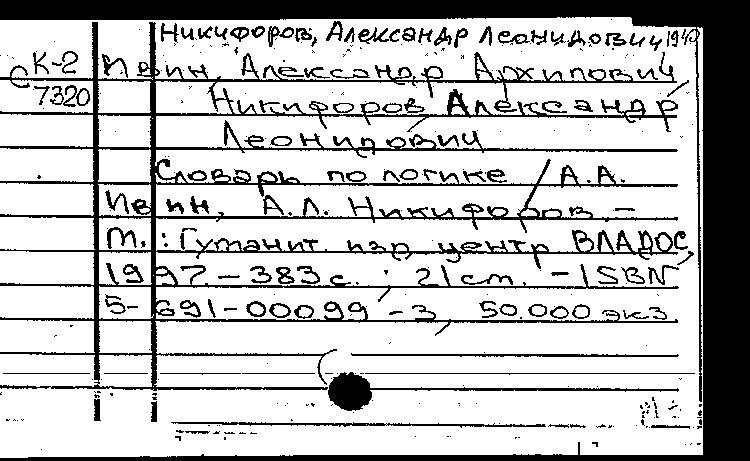 Никифоров, Александр Леонидович, 1940
К-2 Ивин, Александр Архипович
с 7320 Никифоров Александр
Леонидович
Словарь по логике / А.А.
Ивин, А.Л. Никифоров. –
М.: Гуманит. изд. центр ВЛАДОС,
1997. – 383 с. ; 21 см. – ISBN
5-691-00099-3, 50.000 экз